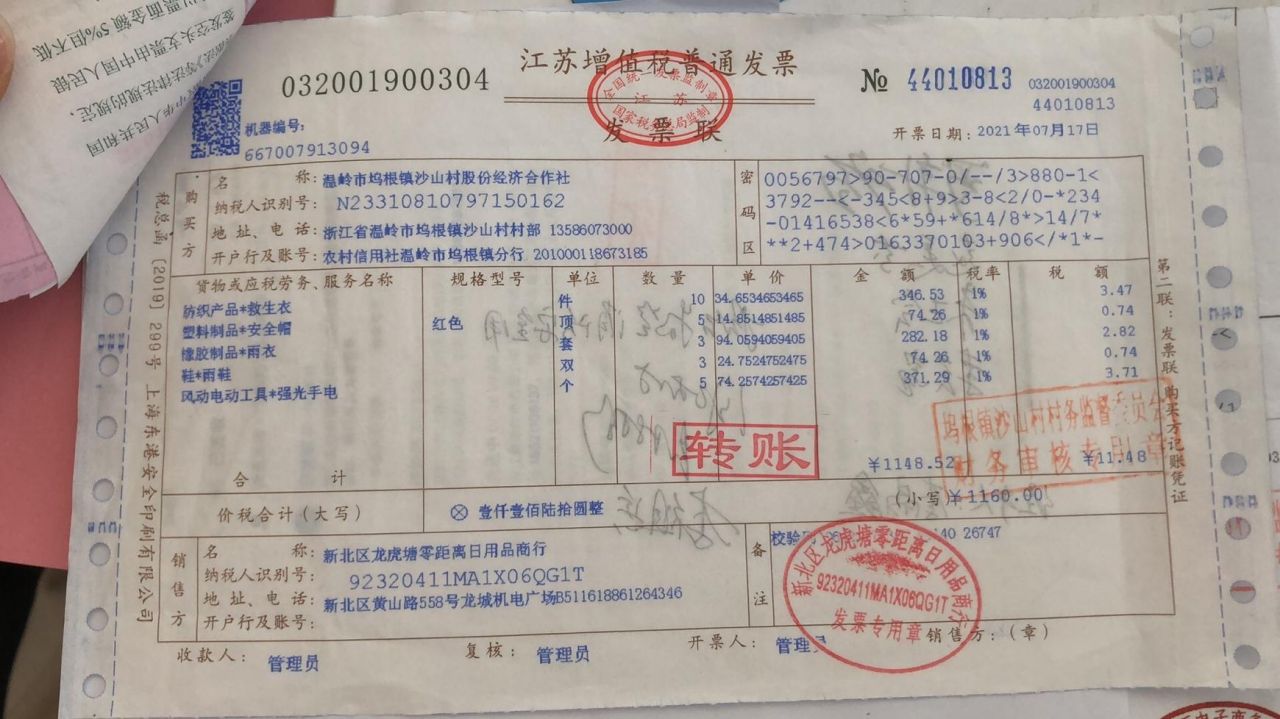 江苏增值税普通发票
032001900304
№ 44010813
032001900304
44010813
全国统一发票监制章
江苏
国家税务总局监制
发票联
机器编号:
667007913094
开票日期: 2021年07月17日
购买方
名称: 温岭市坞根镇沙山村股份经济合作社
纳税人识别号: N2331081079715016​2
地址、电话: 浙江省温岭市坞根镇沙山村村部 13586073000
开户行及账号: 农村信用社温岭市坞根镇分行 201000118673185
密码区
0056797>90-707-0/--/3>880-1<
3792--<-345<8+9>3-8<2/0-*234
-01416538<6*59+*614/8*>14/7*
**2+474>0163370103+906</*1*-
货物或应税劳务、服务名称 规格型号 单位 数量 单价 金额 税率 税额
纺织产品*救生衣 件 10 34.6534653465 346.53 1% 3.47
塑料制品*安全帽 红色 顶 5 14.8514851485 74.26 1% 0.74
橡胶制品*雨衣 套 3 94.0594059405 282.18 1% 2.82
鞋*雨鞋 双 3 24.7524752475 74.26 1% 0.74
风动电动工具*强光手电 个 5 74.2574257425 371.29 1% 3.71
转账
坞根镇沙山村村务监督委员会
财务审核专用章
合计 ¥1148.52 ¥11.48
价税合计(大写) ⊗ 壹仟壹佰陆拾圆整 (小写) ¥1160.00
销售方
名称: 新北区龙虎塘零距离日用品商行
纳税人识别号: 92320411MA1X06QG1T
地址、电话: 新北区黄山路558号龙城机电广场B511618861264346
开户行及账号:
备注
校验 26747
新北区龙虎塘零距离日用品商行
92320411MA1X06QG1T
发票专用章
收款人: 管理员 复核: 管理员 开票人: 管理 销售方:(章)
税总函〔2019〕299号 上海东港安全印刷有限公司
第二联:发票联 购买方记账凭证